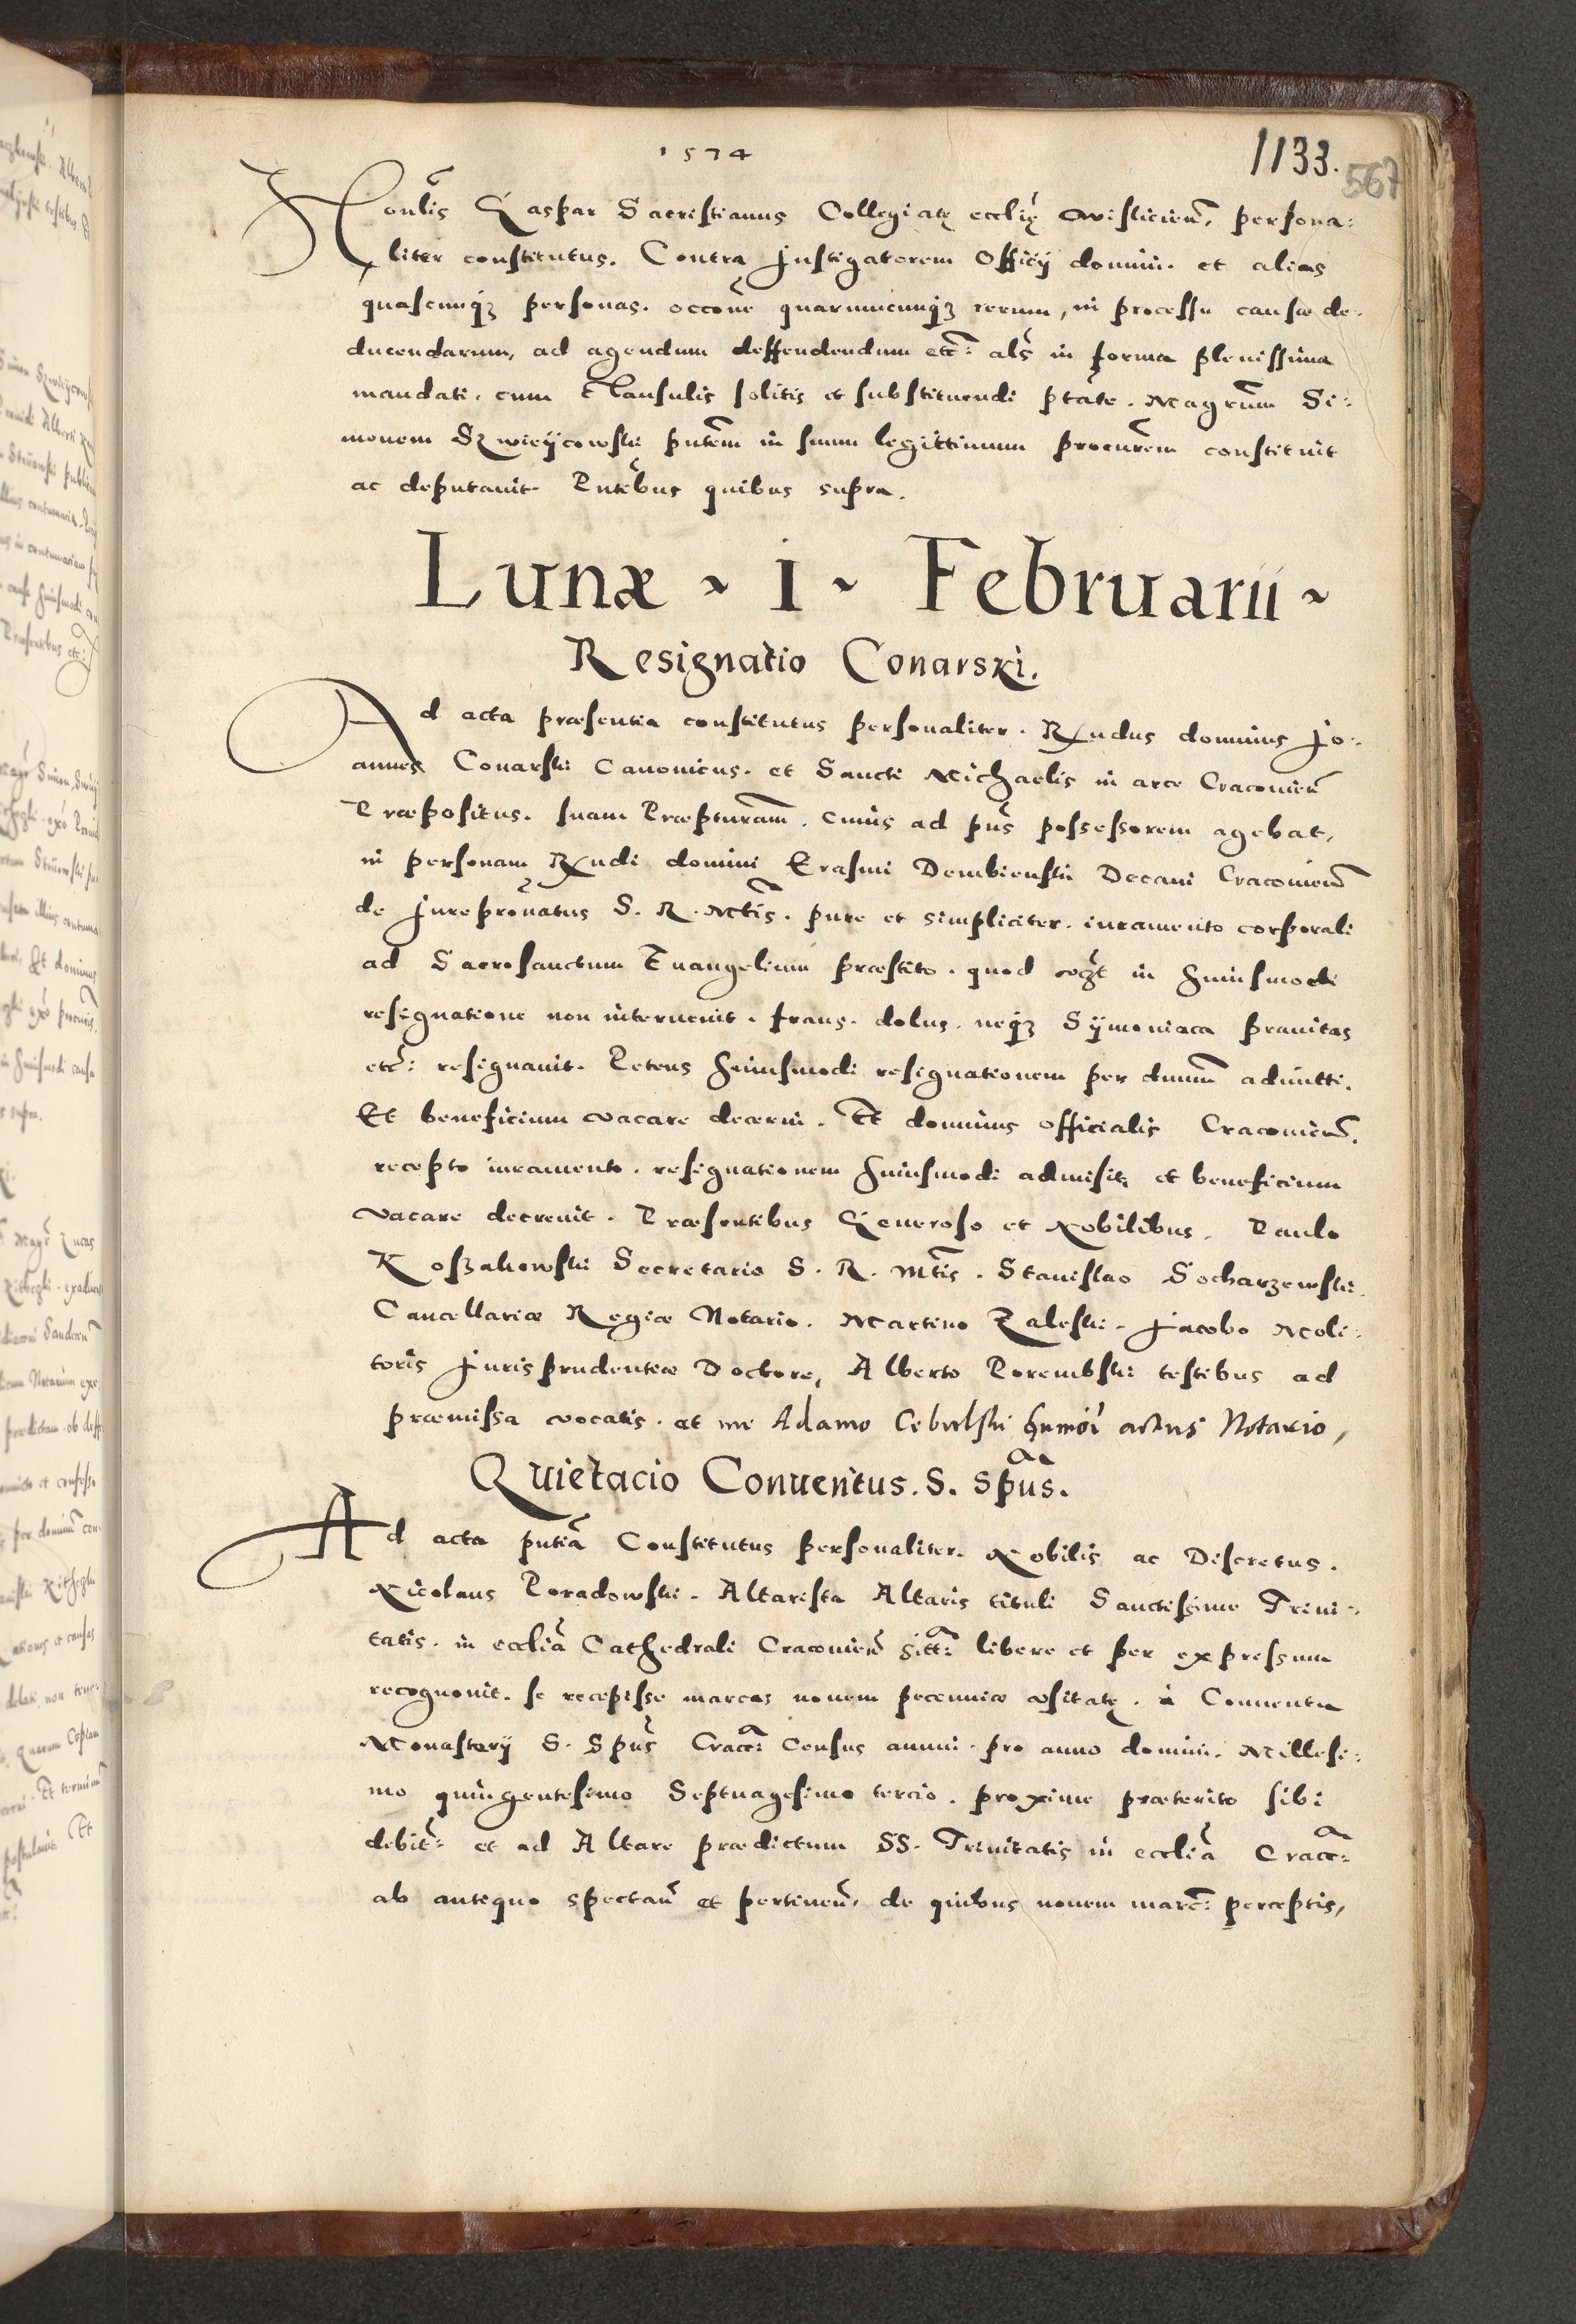 1574
1133.
567
Honlis Gaspar Sacristianus Collegiatę ecclię Wislicien̄, persona:
liter constitutus. Contra Instigatorem Officÿ domini. et alias
quascunqȝ personas. occone quarumcunqȝ rerum, in processu causæ de:
ducendarum, ad agendum deffendendum etc: als in forma plenissima
mandati. cum Clausulis solitis et substituendi ptate. Magrum Si:
monem Szwieÿcowski pntem in suum legittimum procurem constituit
ac deputauit. Pntibus quibus supra.
Lunæ ~ 1 ~ Februarii ~
Resignatio Conarski.
Ad acta præsentia constitutus personaliter. Rndus dominus Jo:
annes Conarski Canonicus. et Sancti Michaelis in arce Cracouien̄
Præpositus. suam Præpturam. cuius ad pns possessorem agebat,
in personam Rndi domini Erasmi Dembienski Decani Cracouien̄
de Jurepronatus S. R. Mtis. pure et simpliciter. iuramento corporali
ad Sacrosanctum Euangelium præstito. quod in huiusmodi
resignatione non interuenit. fraus. dolus. neqȝ Sÿmoniaca prauitas
etc: resignauit. Petens huiusmodi resignationem per dnum admitti.
Et beneficium vacare decerni. Et dominus Officialis Cracouien̄.
recepto iuramento. resignationem huiusmodi admisit, et beneficium
vacare decreuit. Præsentibus Generoso et Nobilibus. Paulo
Koszakowski Secretario S. R. Mtis. Stanislao Socharzewski.
Cancellariæ Regiæ Notario. Martino Zaleski. Jacobo Moli:
toris Jurisprudentiæ Doctore, Alberto Porembski testibus ad
præmissa vocatis. et me Adamo Cebulski humoi actus Notario,
Quietacio Conuentus. S. Spus.
Ad acta pntia Constitutus personaliter. Nobilis ac Discretus.
Nicolaus Poradowski. Altarista Altaris tituli Sanctissime Trini:
tatis. in ecclia Cathedrali Cracouien̄ sitt: libere et per expressum
recognouit. se recepisse marcas nouem pecuniæ vsitatę. à Conuentu
Monasterÿ S. Spus Cracc: Census annui. pro anno domini. Millesi:
mo quingentesimo Septuagesimo tercio. proxime præterito sibi
debit: et ad Altare prædictum SS. Trinitatis in ecclia Cracc:
ab antiquo spectan̄ et pertinen̄. de quibus nouem marc: perceptis,